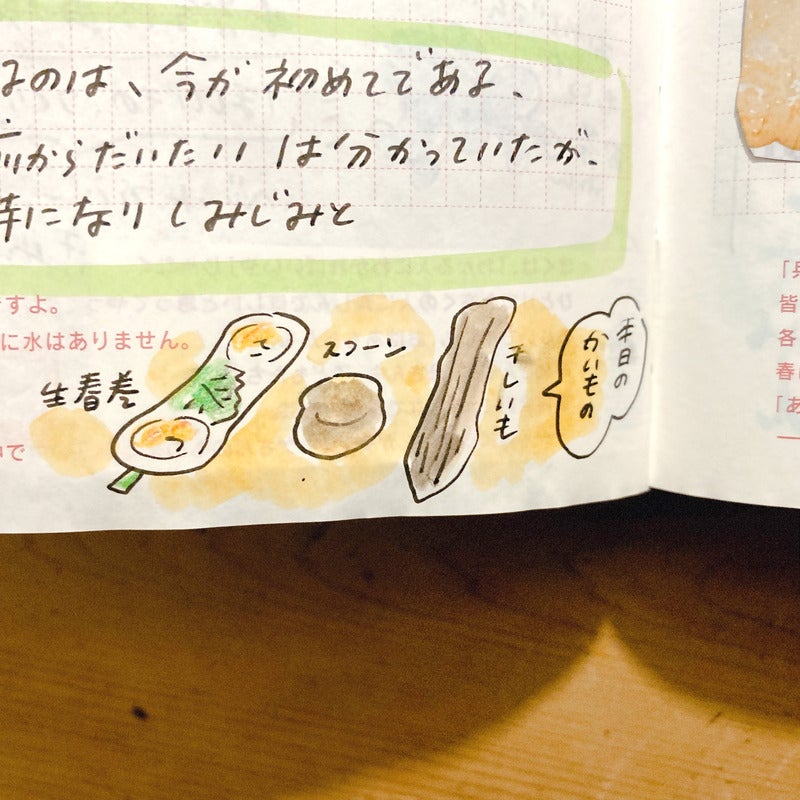 るのは、今が初めてである、
前からだいたいは分かっていたが、
になりしみじみと
すよ。
に水はありません。
で
生春巻
スコーン
干しいも
本日の
かいもの
「
皆
各
春
「あ